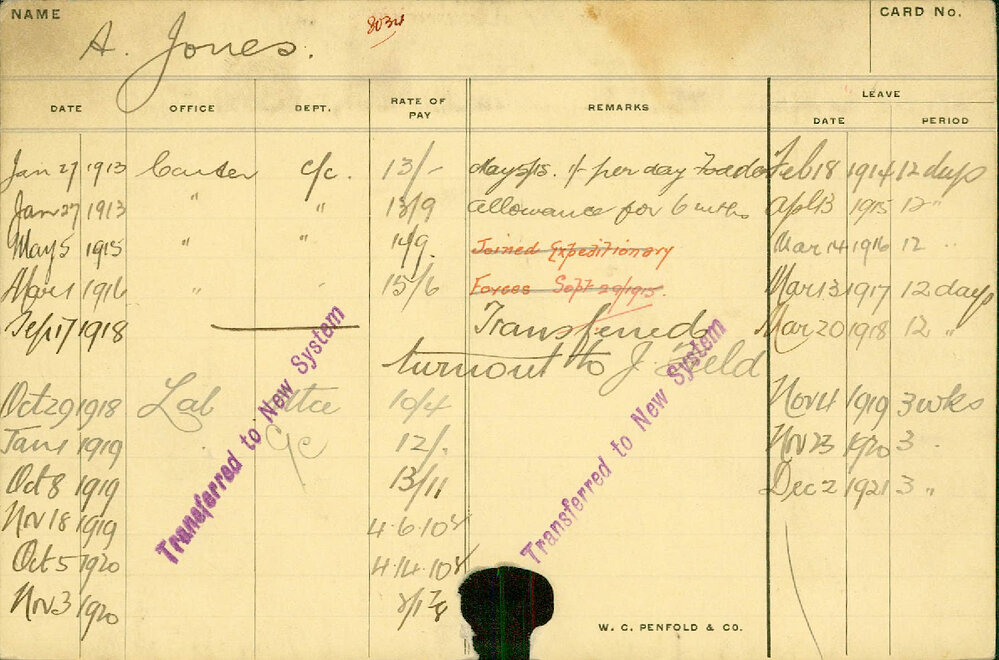 NAME
A. Jones.
8034
CARD No.
DATE OFFICE DEPT. RATE OF PAY REMARKS LEAVE
DATE PERIOD
Jan 27 1913 Carter c/c. 13/- May 5/15. 1/- per day Feb 18 1914 12 days
Jan 27 1913 " " 13/9 allowance for 6 mths Apl 13 1915 12 "
May 5 1915 " " 14/9. Joined Expeditionary Mar 14 1916 12 "
Mar 1 1916 " " 15/6 Forces Sept 29/1915. Mar 13 1917 12 days
Sep 17 1918 Transferred Mar 20 1918 12 "
turnout to J. Field
Oct 29 1918 Lab 10/4 Nov 4 1919 3 wks
Jan 1 1919 c/c 12/. Nov 23 1920 3 "
Oct 8 1919 13/11 Dec 2 1921 3 "
Nov 18 1919 4.6.10
Oct 5 1920 4.14.10
Nov 3 1920
Transferred to New System
Transferred to New System
W. C. PENFOLD & CO.